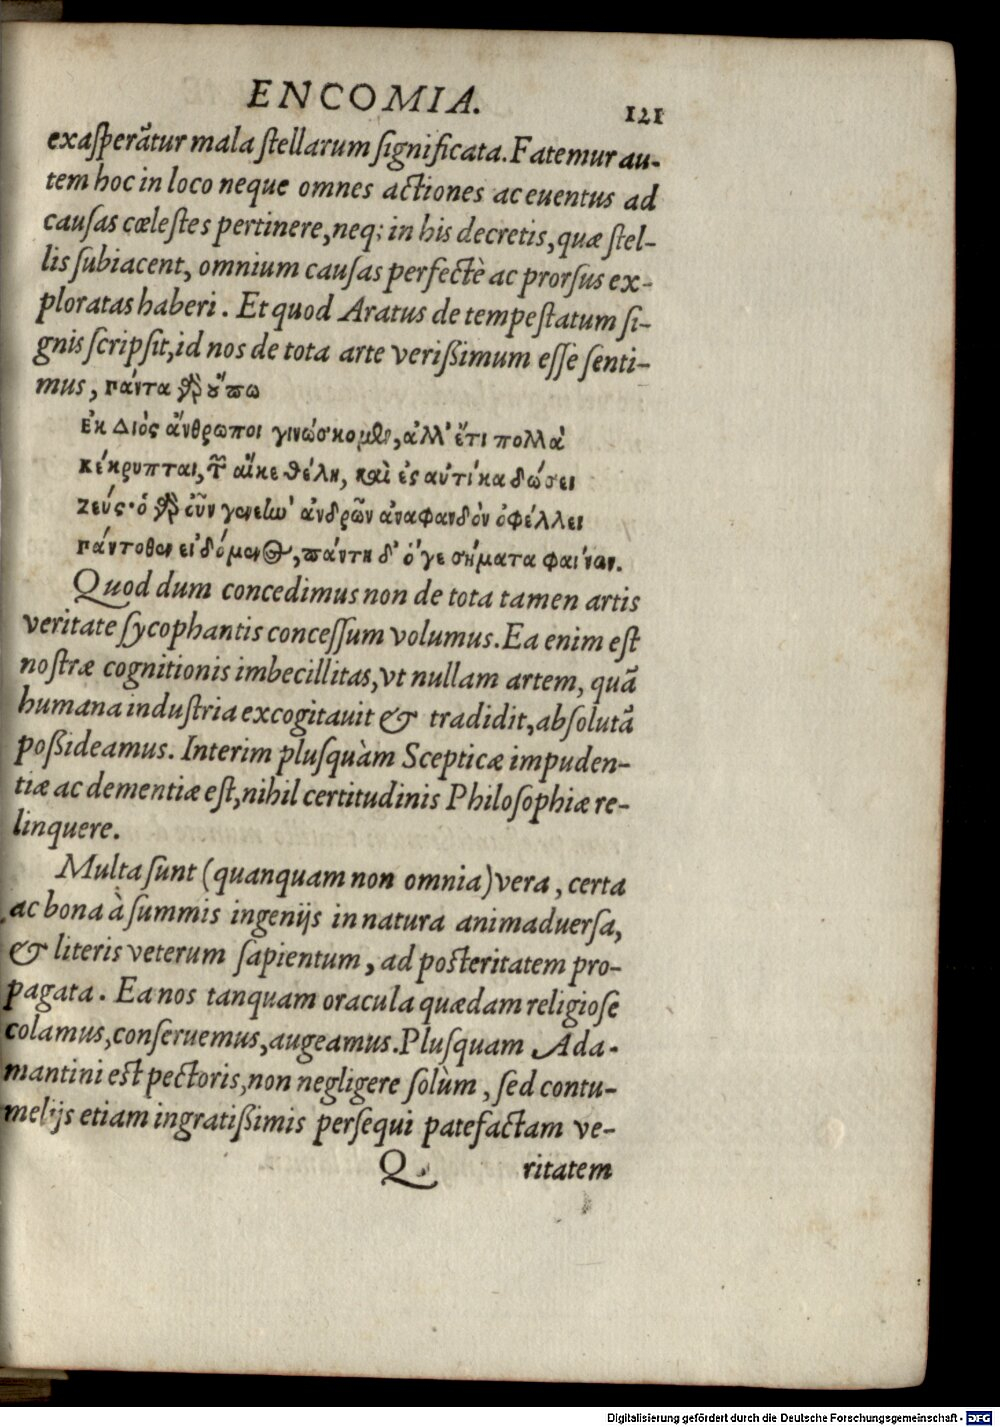 ENCOMIA. 121
exaſperãtur mala ſtellarum ſignificata. Fatemur au-
tem hoc in loco neque omnes actiones ac euentus ad
cauſas cœleſtes pertinere, neq; in his decretis, quæ ſtel-
lis ſubiacent, omnium cauſas perfectè ac prorſus ex-
ploratas haberi. Et quod Aratus de tempeſtatum ſi-
gnis ſcripſit, id nos de tota arte verißimum eſſe ſenti-
mus, πάντα γὰρ οὔπω
ἐκ Διὸς ἄνθρωποι γινώσκομεν, ἀλλ' ἔτι πολλὰ
κέκρυπται, τῶν αἴκε θέλῃ, καὶ ἐς αὐτίκα δώσει
ζεύς· ὁ γὰρ οὖν γενεὼ ἀνδρῶν ἀναφανδὸν ὀφέλλει
πάντοθεν εἰδόμενος, πάντη δ' ὅγε σήματα φαίνων.
Quod dum concedimus non de tota tamen artis
veritate ſycophantis conceſſum volumus. Ea enim eſt
noſtræ cognitionis imbecillitas, vt nullam artem, quã
humana induſtria excogitauit & tradidit, abſolutã
poßideamus. Interim pluſquàm Scepticæ impuden-
tiæ ac dementiæ eſt, nihil certitudinis Philoſophiæ re-
linquere.
Multa ſunt (quanquam non omnia) vera, certa
ac bona à ſummis ingenijs in natura animaduerſa,
& literis veterum ſapientum, ad poſteritatem pro-
pagata. Ea nos tanquam oracula quædam religioſe
colamus, conſeruemus, augeamus. Pluſquam Ada-
mantini eſt pectoris, non negligere ſolùm, ſed contu-
melijs etiam ingratißimis perſequi patefactam ve-
Q ritatem
Digitalisierung gefördert durch die Deutsche Forschungsgemeinschaft - DFG